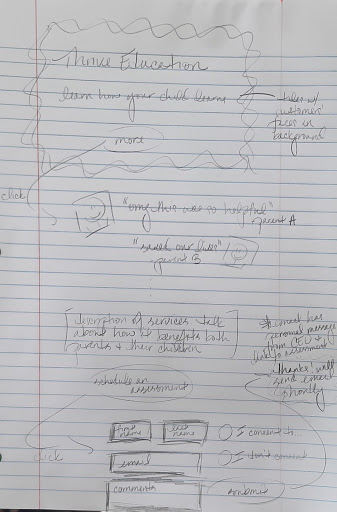 Thrive Education
learn how your child learns
tiles w/
customers'
faces in
background
more
click
"omg this was so helpful"
- parent A
"saved our lives"
- parent B
[description of services - talk
about how it benefits both
parents + their children]
* email has
personal message
from CEO +
link to assessment
schedule an
assessment
Thanks! We'll
send email
shortly
click
first
name
last
name
I consent to...
I don't consent
email
comments